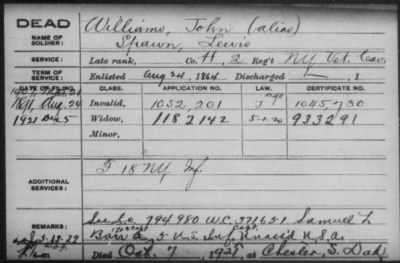 DEAD
NAME OF SOLDIER:
Williams, John (alias)
Spawn, Lewis
SERVICE:
Late rank, Co. H, 2 Reg't NY Vet. Cav.
TERM OF SERVICE:
Enlisted Aug 24, 1864 Discharged
DATE OF FILING. CLASS. APPLICATION NO. LAW. CERTIFICATE NO.
Invalid, 1052,201 1045730
1891, Aug. 24
1921 Dec 5 Widow, 1182142 5-1-20 933291
Minor,
ADDITIONAL SERVICES:
F 18 NY Inf.
REMARKS:
See S.C. 794980 W.C. 371621 Samuel L
U.S. Inf. Unass'd U.S.A.
Died Oct. 7, 1921, at Chester, S. Dak